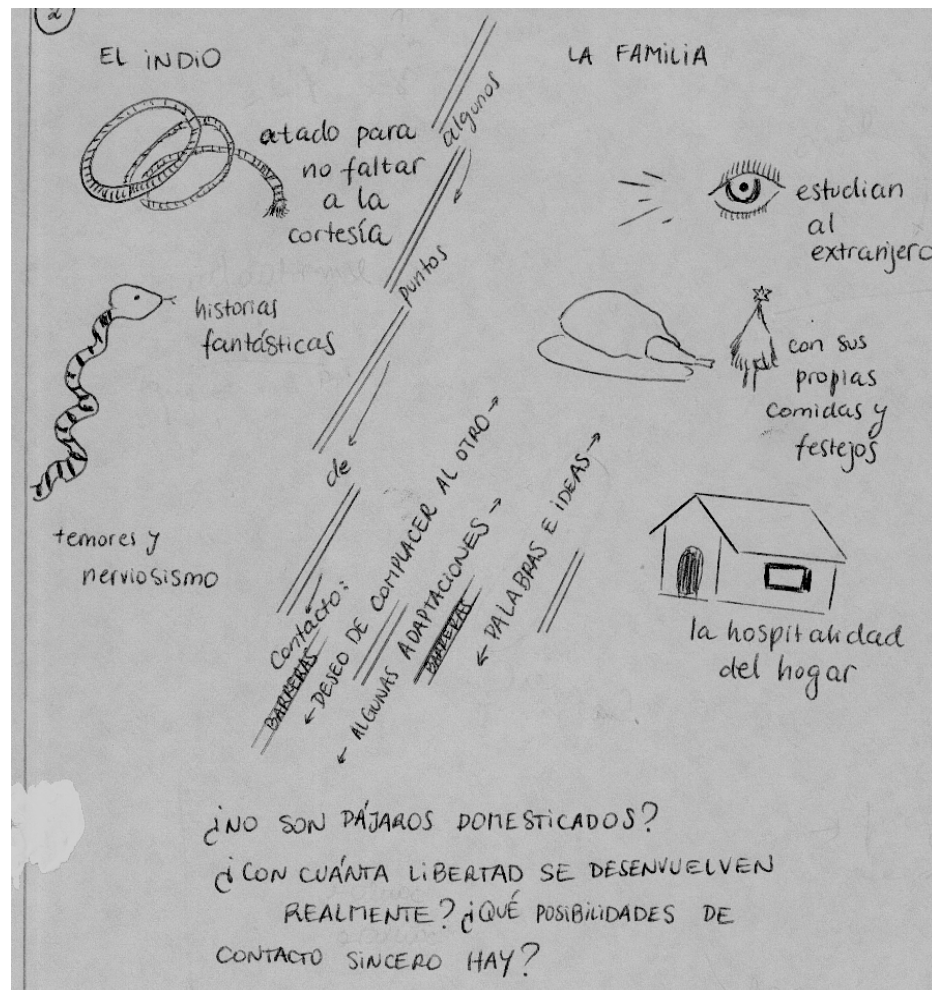 2
EL INDIO
atado para
no faltar
a la
cortesía
historias
fantásticas
temores y
nerviosismo
algunos
puntos
de
contacto:
BARRERAS
← DESEO DE COMPLACER AL OTRO →
← ALGUNAS ADAPTACIONES →
BARRERAS
← PALABRAS E IDEAS →
LA FAMILIA
estudian
al
extranjero
con sus
propias
comidas y
festejos
la hospitalidad
del hogar
¿NO SON PÁJAROS DOMESTICADOS?
¿CON CUÁNTA LIBERTAD SE DESENVUELVEN
REALMENTE? ¿QUÉ POSIBILIDADES DE
CONTACTO SINCERO HAY?